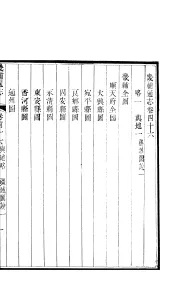 畿輔通志卷四十六
略一 輿地一 疆域圖說一
畿輔全圖
順天府全圖
大興縣圖
宛平縣圖
良鄉縣圖
固安縣圖
永清縣圖
東安縣圖
香河縣圖
通州圖